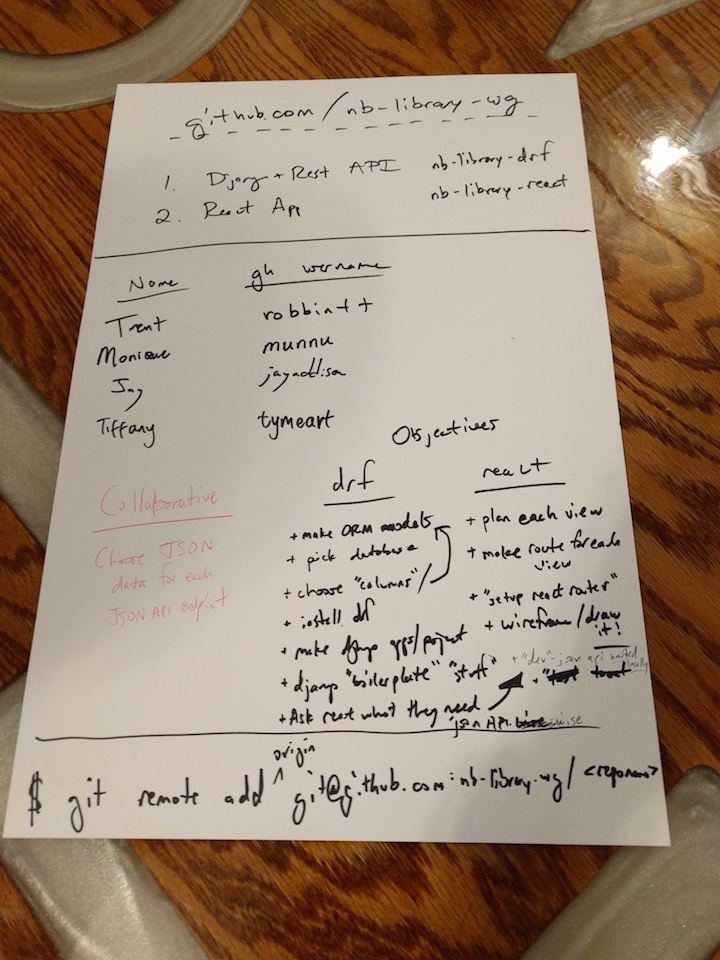 github.com/nb-library-wg
1. Django + Rest API nb-library-drf
2. React App nb-library-react
Name gh username
Trent robbintt
Monique munnu
Jay jayaddison
Tiffany tymeart
Objectives
Collaborative
Choose JSON
data for each
JSON API endpint
drf
+ make ORM models
+ pick database
+ choose "columns"/
+ install drf
+ make django apps/project
+ django "boilerplate" "stuff"
+ Ask react what they need
json API wise
react
+ plan each view
+ make route for each
view
+ "setup react router"
+ wireframe/draw
it!
+ "dev"-json api hosted
locally
$ git remote add origin git@github.com:nb-library-wg/<reponame>